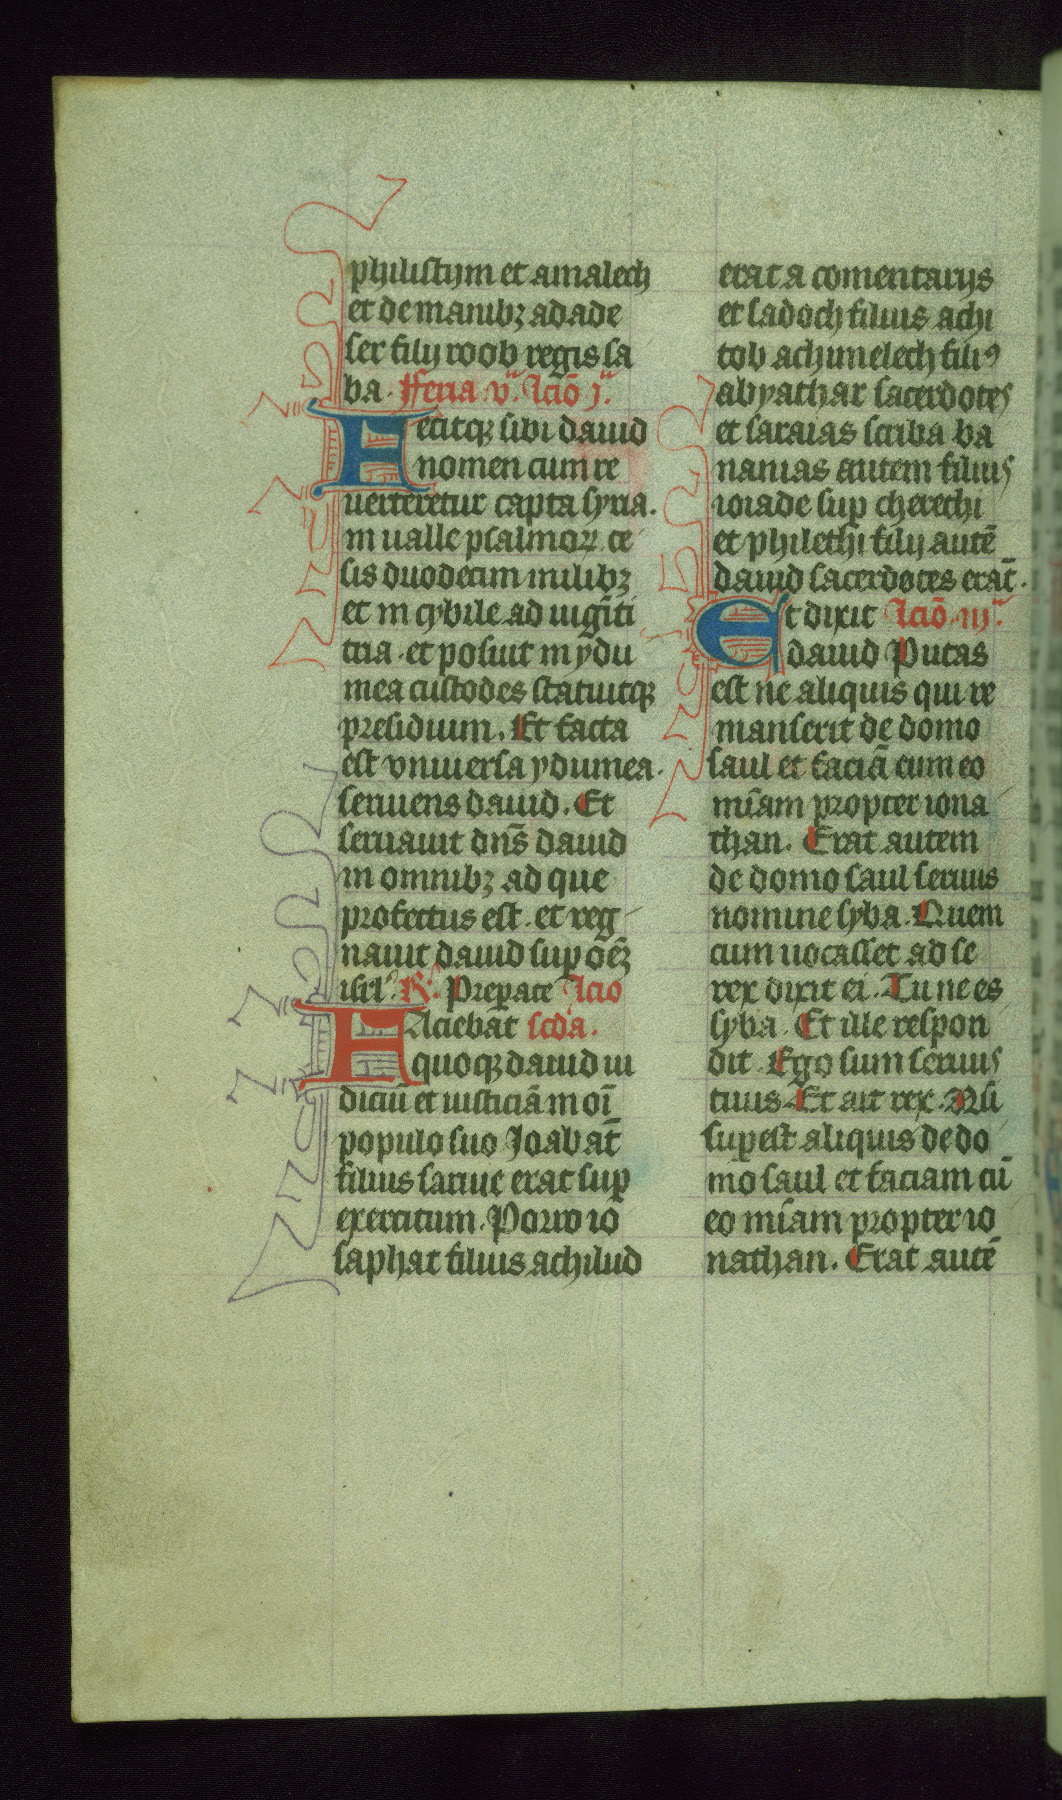 philistijm et amalech
et de manibꝫ adade
ser filij roob regis sa
ba. Fferia .vᵃ. lcıō jᵃ.
Fecitqꝫ sibi dauid
nomen cum re
uerteretur capta syria.
in ualle psalmoꝝ. ce
sis duodecim milibꝫ
et in cybile ad uigīti
tria. et posuit in ydu
mea custodes statuitqꝫ
presidium. Et facta
est vniuersa ydumea.
seruiens dauid. Et
seruauit dn̄s dauid
in omnibꝫ ad que
profectus est. et reg
nauit dauid suꝑ oēꝫ
isrl̄. R. Preparate lcio
Faciebat scđa.
quoqꝫ dauid iu
diciū et iusticiā in oī
populo suo Joab aūt
filius saruie erat suꝑ
exercitum. Porro io
saphat filius achilud
erat a comentarijs
et sadoch filius achi
tob achimelech filiꝰ
abyathar sacerdotes
et saraias scriba ba
nanias autem filius
ioiade suꝑ cherethi
et philethi filij autē
dauid sacerdotes erāt.
Et dixit lciō .iijᵃ.
dauid Putas
est ne aliquis qui re
manserit de domo
saul et faciā cum eo
mīam propter iona
than. Erat autem
de domo saul seruus
nomine syba. Quem
cum uocasset ad se
rex dixit ei. Tu ne es
syba. Et ille respon
dit. Ego sum seruus
tuus. Et ait rex. Nū
suꝑest aliquis de do
mo saul et faciam cū
eo mīam propter io
nathan. Erat autē